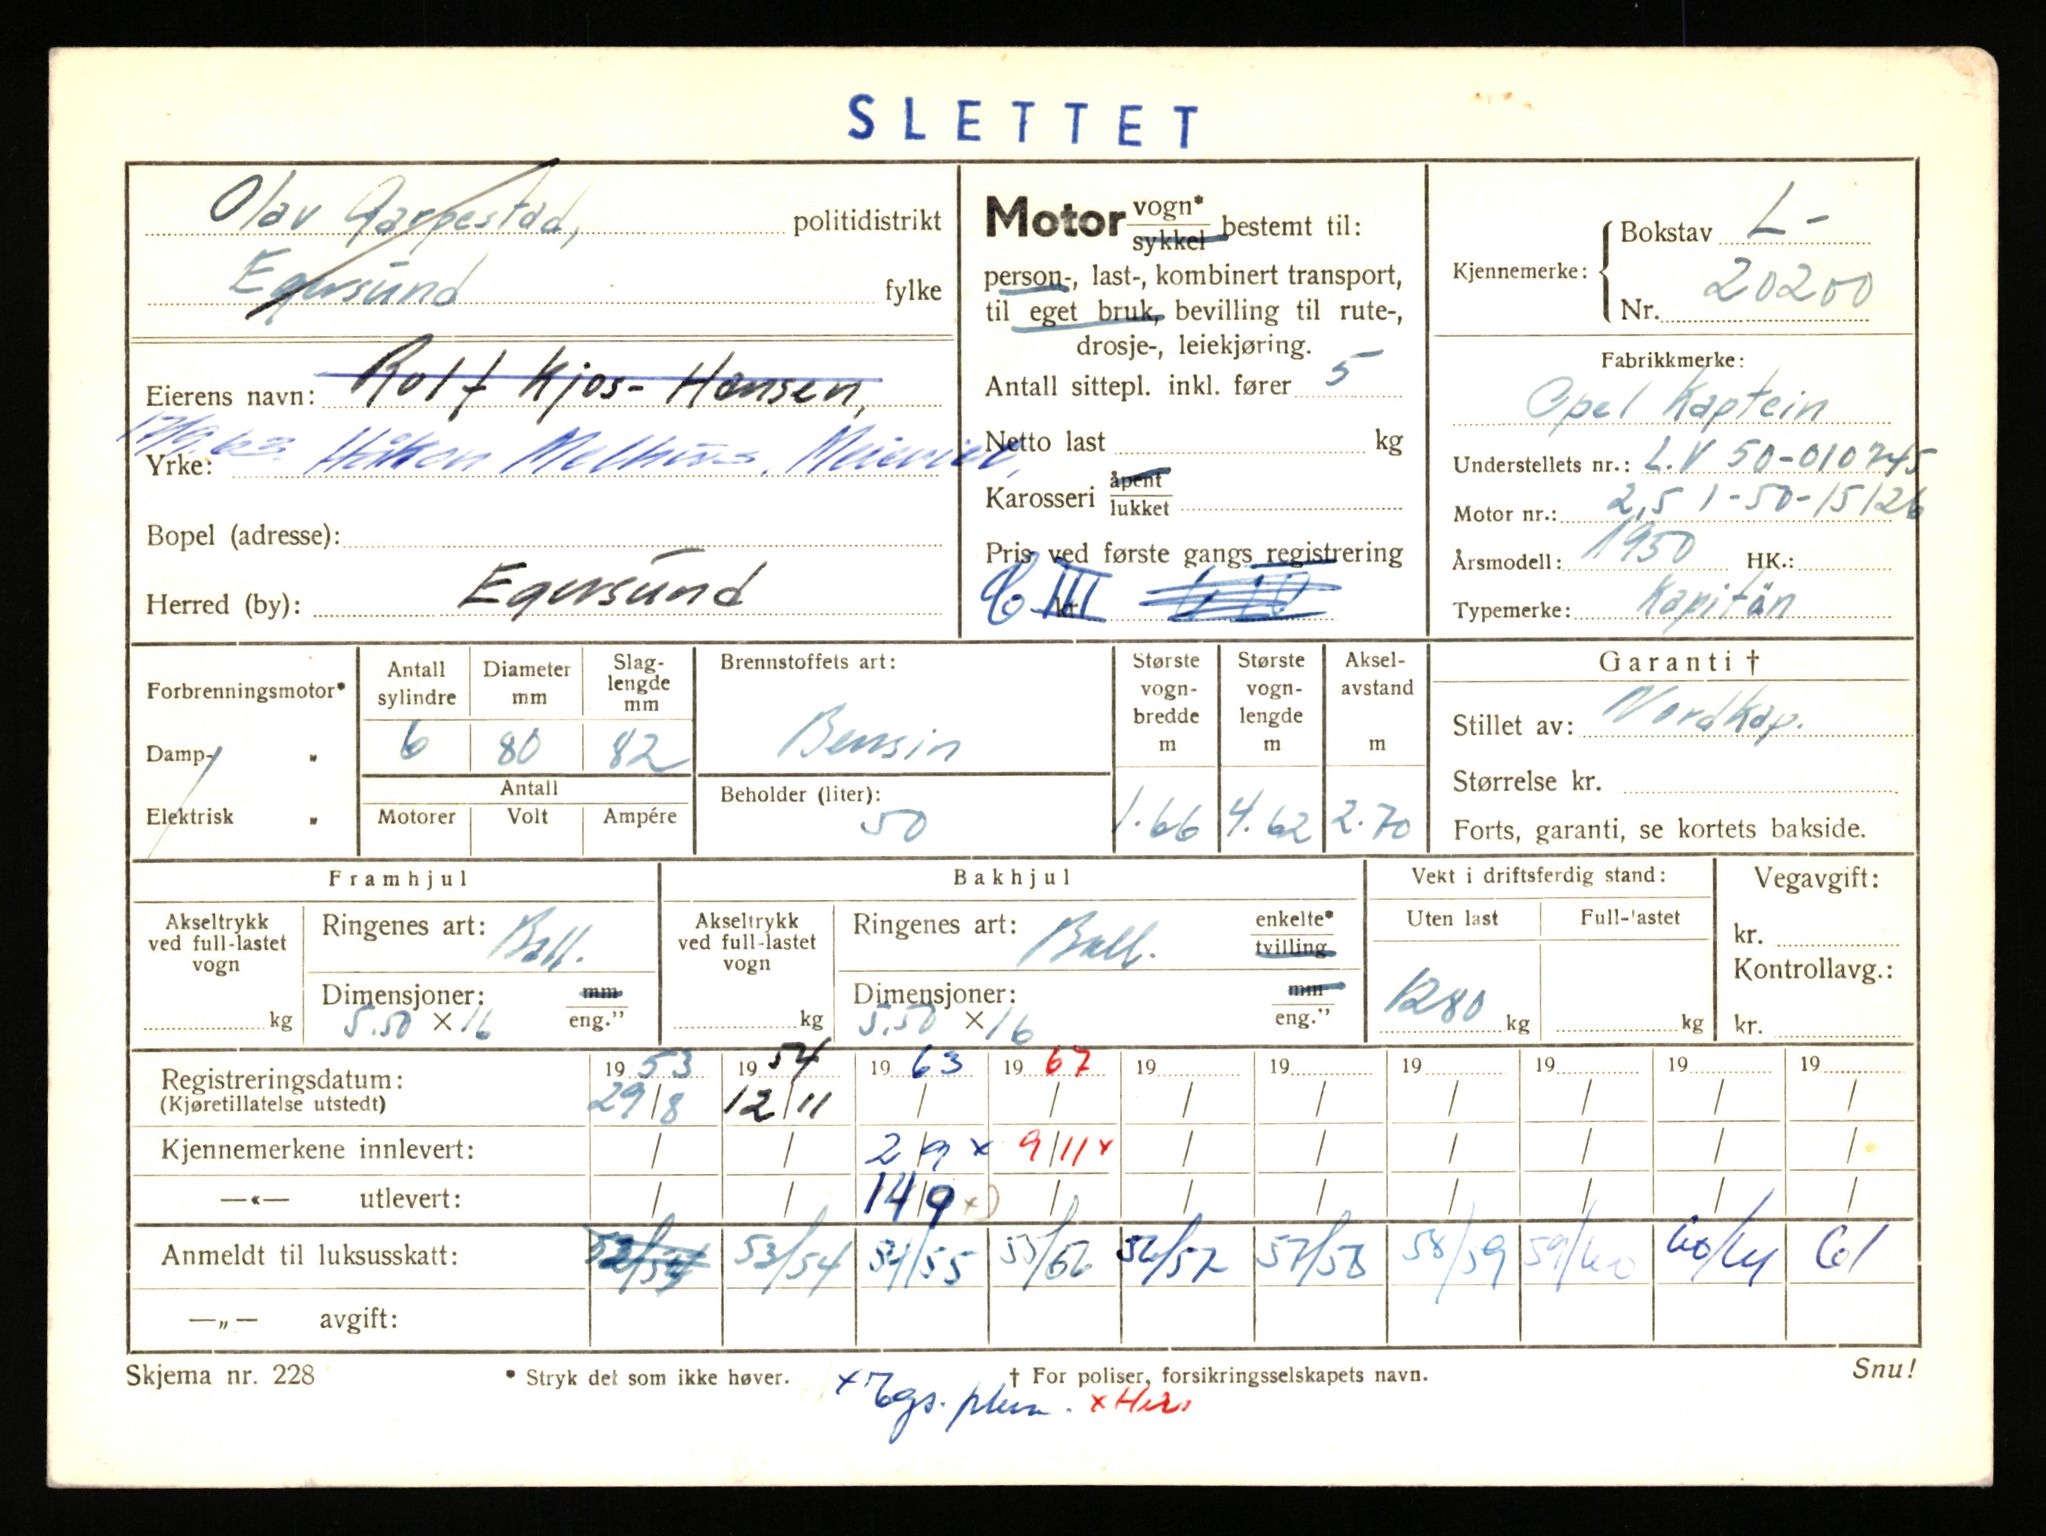 SLETTET
Olav Garpestad, politidistrikt
Egersund fylke
Eierens navn: Rolf Kjos-Hansen,
Yrke: Håkon Melhus,
Bopel (adresse):
Herred (by): Egersund
Motor vogn* sykkel bestemt til:
person-, last-, kombinert transport,
til eget bruk, bevilling til rute-,
drosje-, leiekjøring.
Antall sittepl. inkl. fører 5
Netto last kg
Karosseri åpent lukket
Pris ved første gangs registrering
kr. III
Kjennemerke: Bokstav L-
Nr. 20200
Fabrikkmerke:
Opel Kaptein
Understellets nr.: L.V 50-010745
Motor nr.: 2,5 1-50-15126
Årsmodell: 1950 HK.:
Typemerke: Kapitän
Forbrenningsmotor*
Damp- "
Elektrisk "
Antall sylindre Diameter mm Slag-lengde mm
6 80 82
Antall
Motorer Volt Ampére
Brennstoffets art:
Bensin
Beholder (liter):
50
Største vogn-bredde m Største vogn-lengde m Aksel-avstand m
1.66 4.62 2.70
Garanti †
Stillet av: Nordkap.
Størrelse kr.
Forts, garanti, se kortets bakside.
Framhjul
Akseltrykk ved full-lastet vogn
kg
Ringenes art: Ball.
Dimensjoner: mm
5.50 × 16 eng."
Bakhjul
Akseltrykk ved full-lastet vogn
kg
Ringenes art: Ball. enkelte* tvilling
Dimensjoner: mm
5.50 × 16 eng."
Vekt i driftsferdig stand:
Uten last Full-lastet
1280 kg kg
Vegavgift:
kr.
Kontrollavg.:
kr.
Registreringsdatum: 1953 1954 1963 1967 19 19 19 19 19 19
(Kjøretillatelse utstedt) 29/8 12/11 / / / / / / / /
Kjennemerkene innlevert: / / 2/9 x 9/11 x / / / / / /
—«— utlevert: / / 14/9 x) / / / / / / /
Anmeldt til luksusskatt: 53/54 53/54 54/55 55/56 56/57 57/58 58/59 59/60 60/61 61
—„— avgift:
Skjema nr. 228 * Stryk det som ikke høver. † For poliser, forsikringsselskapets navn. Snu!